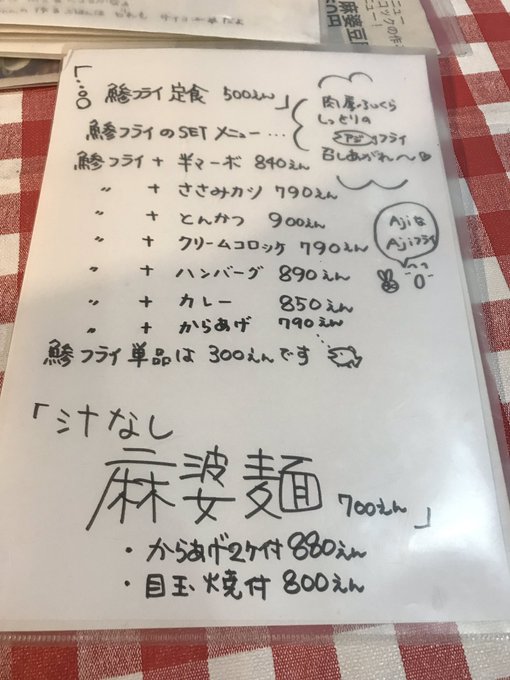 「鯵フライ定食 500えん」
鯵フライのSETメニュー…
鯵フライ + 半マーボ 840えん
〃 + ささみカツ 790えん
〃 + とんかつ 900えん
〃 + クリームコロッケ 790えん
〃 + ハンバーグ 890えん
〃 + カレー 850えん
〃 + からあげ 790えん
鯵フライ単品は 300えんです
肉厚ふっくら
しっとりの
アジフライ
召しあがれ〜♡
Ajiな
Ajiフライ
「汁なし
麻婆麺 700えん」
・からあげ2ケ付 880えん
・目玉焼付 800えん